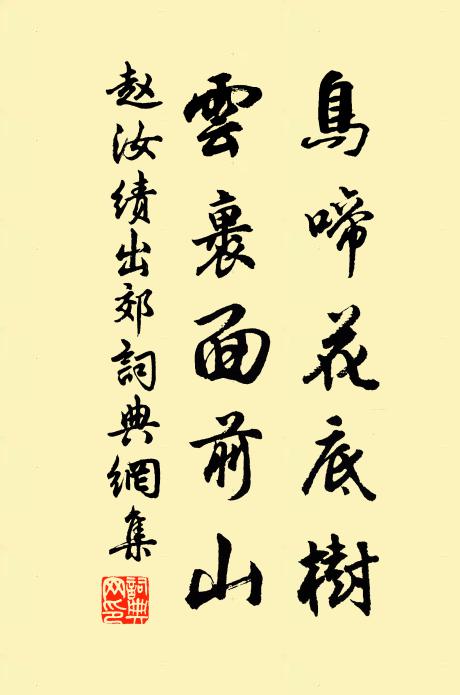 鳥啼花底樹
雲裏面前山
赵汝績出郊詞典網集
詞典网印